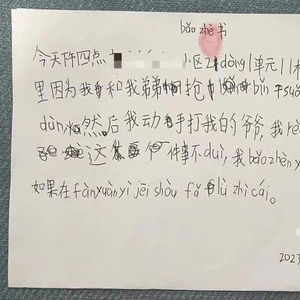 bǎo zhè书
今天下午四点 小区2 dòng 1单元11
里因为我和我弟弟抢 bǐn
dùn, 然后我动手打我的爷爷,我rè
这件事不duì,我bǎo zhèn
如果在fàn xuàn yì jiē shòu fǎ lǜ zhì cái。
2023